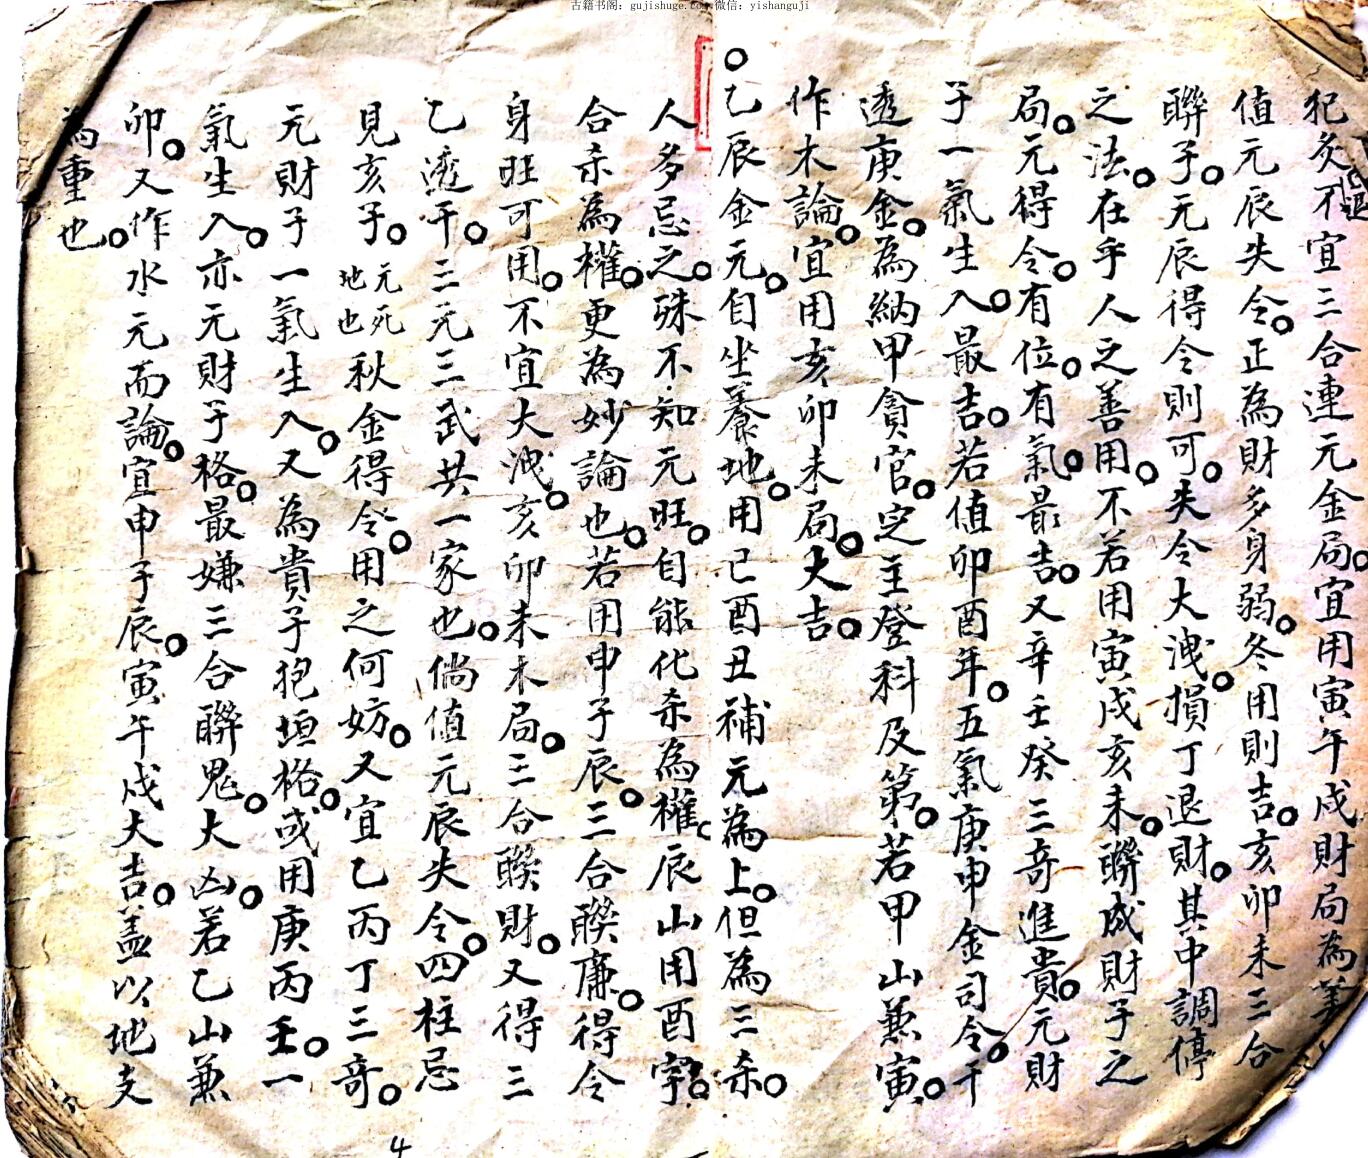 古籍书阁：gujishuge.com微信：yishanguji
犯亥不宜三合連元金局。宜用寅午戌財局為美
值元辰失令。正為財多身弱。冬用則吉。亥卯未三合
聯子。元辰得令則可。失令大洩。損丁退財。其中調停
之法。在乎人之善用。不若用寅戌亥未。聯成財子之
局。元得令。有位。有氣。最吉。又辛壬癸三奇進貴。元財
子一氣生入。最吉。若值卯酉年。五氣庚申金司令。干
透庚金。為納甲貪官。定主登科及第。若甲山兼寅。
作木論。宜用亥卯未局。大吉。
○乙辰金元。自坐養地。用巳酉丑補元為上。但為三杀。
人多忌之。殊不知元旺。自能化杀為權。辰山用酉字。
合杀為權。更為妙論也。若用申子辰。三合聯廉。得令
身旺可用。不宜大洩。亥卯未木局。三合聯財。又得三
乙透干。三元三武共一家也。倘值元辰失令。四柱忌
見亥子。元死地也秋金得令。用之何妨。又宜乙丙丁三奇。
元財子一氣生入。又為貴子抱垣格。或用庚丙壬。一
氣生入。亦元財子格。最嫌三合聯鬼。大凶。若乙山兼
卯。又作水元而論。宜申子辰。寅午戌大吉。盖以地支
為重也。
4